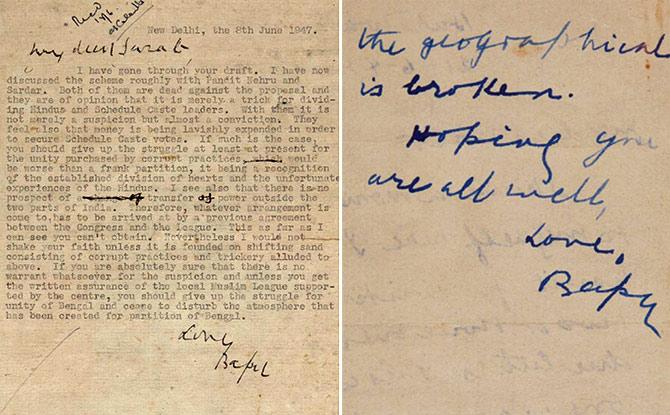 Recd
9/6
New Delhi, the 8th June 1947.
My dear Sarat,
I have gone through your draft. I have now
discussed the scheme roughly with Pandit Nehru and
Sardar. Both of them are dead against the proposal and
they are of opinion that it is merely a trick for divid-
ing Hindus and Schedule Caste leaders. With them it is
not merely a suspicion but almost a conviction. They
feel also that money is being lavishly expended in order
to secure Schedule Caste votes. If such is the case,
you should give up the struggle at least at present for
the unity purchased by corrupt practices, would
be worse than a frank partition, it being a recognition
of the established division of hearts and the unfortunate
experiences of the Hindus. I see also that there is no
prospect of transfer of power outside the
two parts of India. Therefore, whatever arrangement is
come to, has to be arrived at by a previous agreement
between the Congress and the League. This as far as I
can see you can't obtain. Nevertheless I would not
shake your faith unless it is founded on shifting sand
consisting of corrupt practices and trickery alluded to
above. If you are absolutely sure that there is no
warrant whatsoever for the suspicion and unless you get
the written assurance of the local Muslim League suppor-
ted by the centre, you should give up the struggle for
unity of Bengal and cease to disturb the atmosphere that
has been created for partition of Bengal.
Love
Bapu
the geographical
is broken.
Hoping you
are all well,
Love,
Bapu